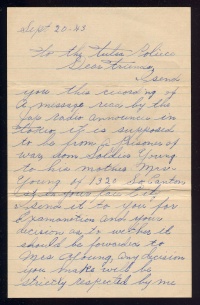 Sept 20-43
To the
Dear friends,
I send
you this recording of
A message read by the
Jap radio announcer in
Tokio, it is supposed
to be from a Prisoner of
war, Soldier Young
to his mother Mrs
Young of 1320 So Canton
I send it to you for
Examanation and your
decision as to wether it
should be forwarded to
Mrs Young, Any decision
you make will be
strictly respected by me